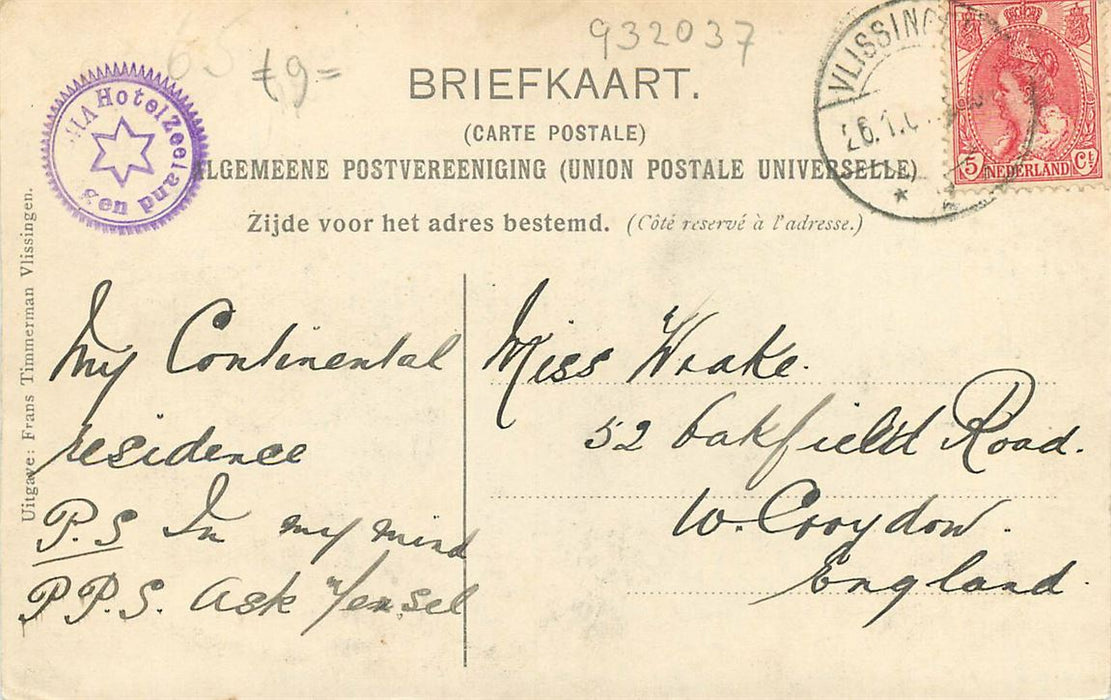 932037
BRIEFKAART.
(CARTE POSTALE)
ALGEMEENE POSTVEREENIGING (UNION POSTALE UNIVERSELLE)
Zijde voor het adres bestemd. (Côté reservé à l'adresse.)
Hotel Zeeland
VLISSIN
26.1.
5 NEDERLAND Ct
Uitgave: Frans Timmerman Vlissingen.
My Continental
residence
P.S In my mind
P.P.S. Ask
Miss Wrake.
52 Oakfield Road.
W. Croydon.
England.